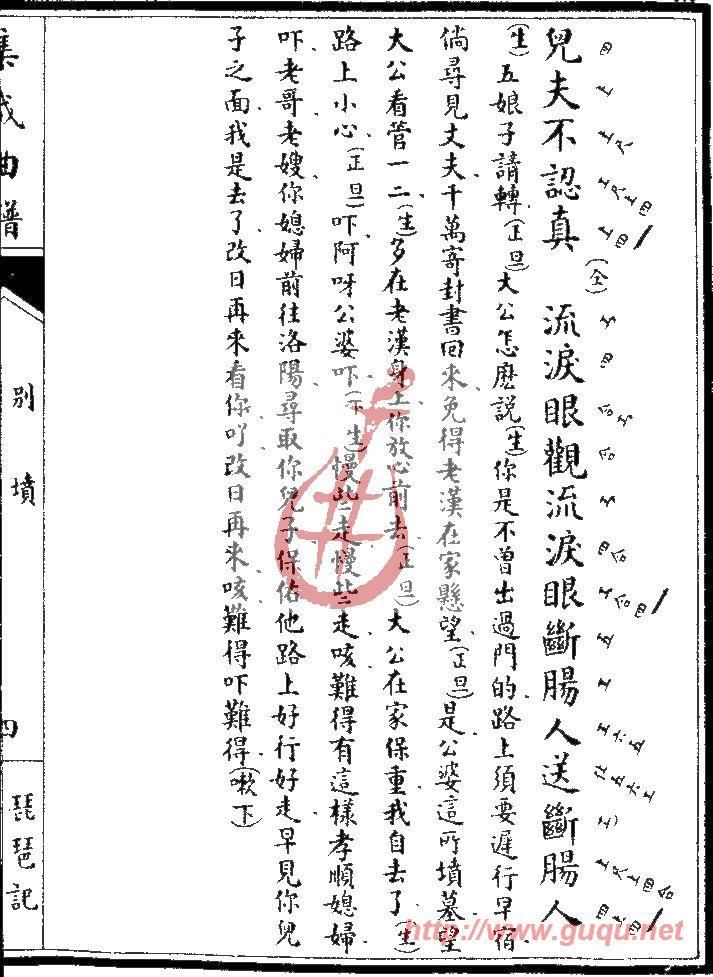 兒夫不認真（仝）流淚眼觀流淚眼斷腸人送斷腸人
（生）五娘子請轉（正旦）大公怎麽說（生）你是不曽出過門的路上須要遲行早宿
倘尋見丈夫千萬寄封書回來免得老漢在家懸望（正旦）是公婆這所墳墓望
大公看管一二（生）多在老漢身上你放心前去（正旦）大公在家保重我自去了（生）
路上小心（正旦）吓阿呀公婆吓（下生）慢些走慢些走咳難得有這樣孝順媳婦
吓老哥老嫂你媳婦前往洛陽尋取你兒子保佑他路上好行好走早見你兒
子之面我是去了改日再來看你吖改日再來咳難得吓難得（嗽下）
集成曲譜
別墳
四
琵琶記
http://www.guqu.net